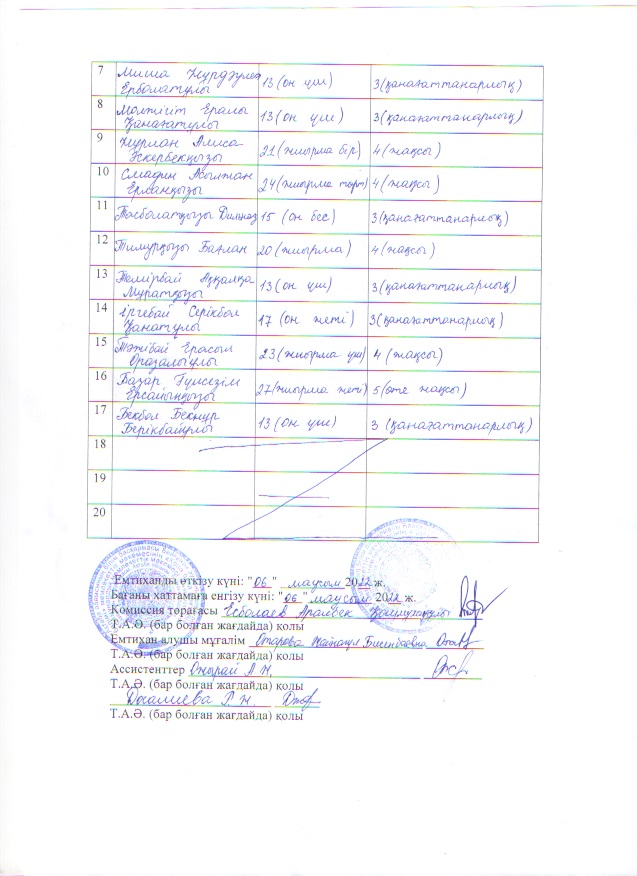 7 Миша Нұрдәулет 13 (он үш) 3 (қанағаттанарлық)
Ерболатұлы
8 Молтігіт Ералы 13 (он үш) 3 (қанағаттанарлық)
Қанағатұлы
9 Нұрлан Алиса 21 (жиырма бір) 4 (жақсы)
Әскербекқызы
10 Смадин 24 (жиырма төрт) 4 (жақсы)
Ерланқызы
11 Тасболатқызы Дильназ 15 (он бес) 3 (қанағаттанарлық)
12 Тимурқызы Баглан 20 (жиырма) 4 (жақсы)
13 Темірбай Аққалқа 13 (он үш) 3 (қанағаттанарлық)
Мұратқызы
14 Іргебай Серікбол 17 (он жеті) 3 (қанағаттанарлық)
Қанатұлы
15 Тәжібай Ерасыл 23 (жиырма үш) 4 (жақсы)
Оразалыұлы
16 Базар Гүлсезім 27 (жиырма жеті) 5 (өте жақсы)
Ерсайынқызы
17 Бекбол Бекнұр 13 (он үш) 3 (қанағаттанарлық)
Берікбайұлы
18
19
20
Емтиханды өткізу күні: "06" маусым 2022 ж.
Бағаны хаттамаға енгізу күні: "06" маусым 2022 ж.
Комиссия торағасы Есболаев
Т.А.Ә. (бар болған жағдайда) қолы
Емтихан алушы мұғалім Отарова Жаңагүл
Т.А.Ә. (бар болған жағдайда) қолы
Ассистенттер
Т.А.Ә. (бар болған жағдайда) қолы
Досалиева Г. Н.
Т.А.Ә. (бар болған жағдайда) қолы